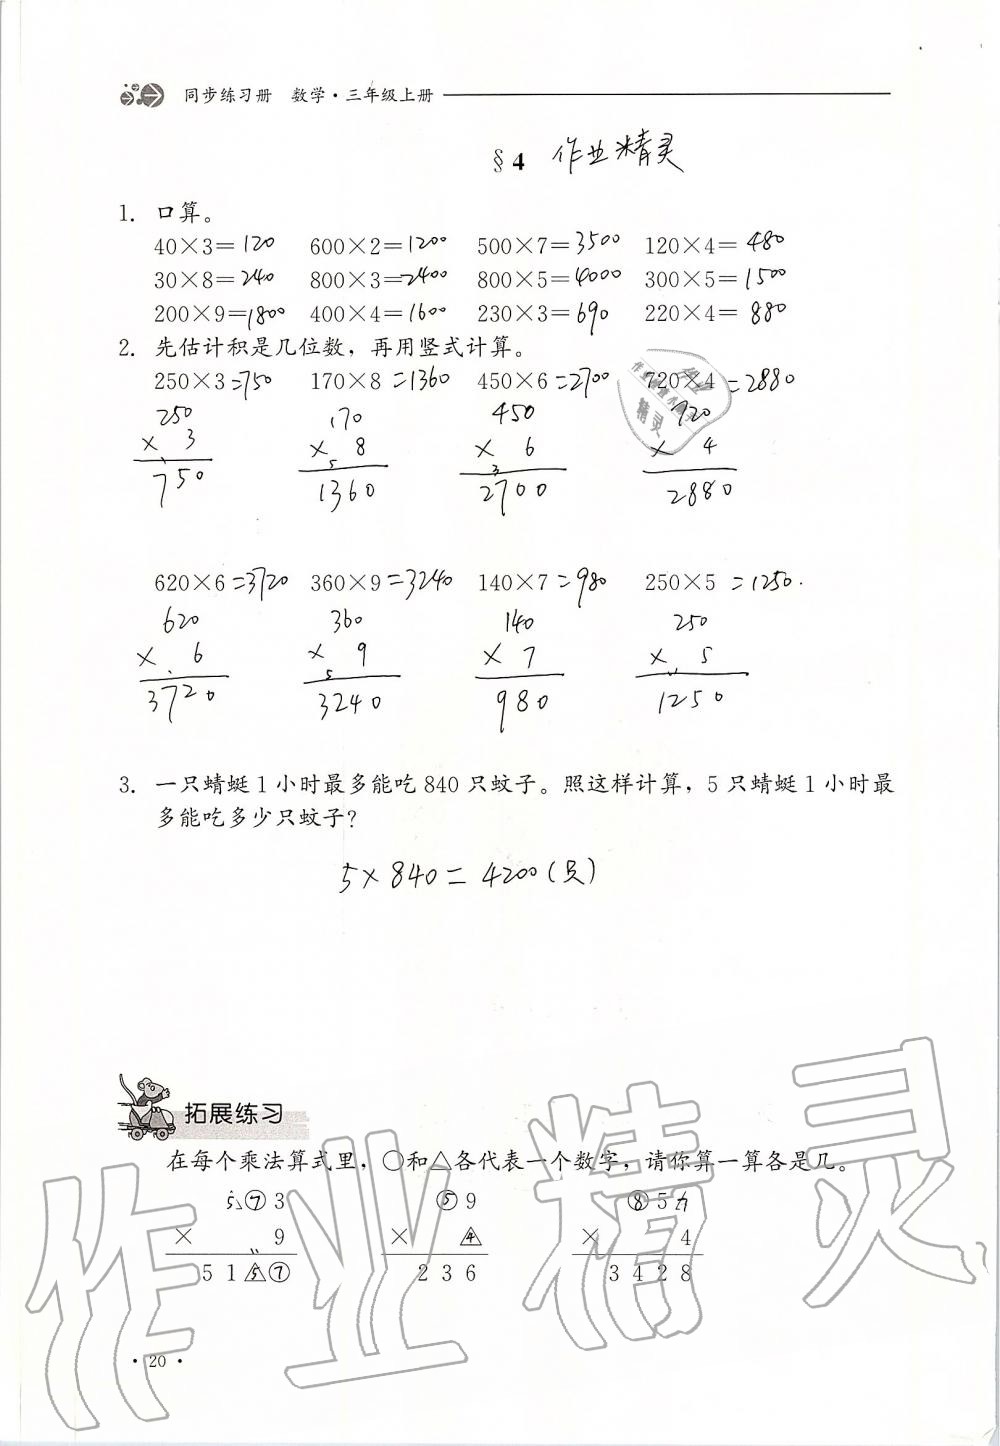 同步练习册 数学·三年级上册
§4 作业精灵
1. 口算。
40×3=120 600×2=1200 500×7=3500 120×4=480
30×8=240 800×3=2400 800×5=4000 300×5=1500
200×9=1800 400×4=1600 230×3=690 220×4=880
2. 先估计积是几位数，再用竖式计算。
250×3=750 170×8=1360 450×6=2700 720×4=2880
250 170 450 720
× 3 × 8 × 6 × 4
750 1360 2700 2880
620×6=3720 360×9=3240 140×7=980 250×5=1250.
620 360 140 250
× 6 × 9 × 7 × 5
3720 3240 980 1250
3. 一只蜻蜓1小时最多能吃840只蚊子。照这样计算，5只蜻蜓1小时最
多能吃多少只蚊子?
5×840=4200(只)
拓展练习
在每个乘法算式里，○和△各代表一个数字，请你算一算各是几。
5⑦3 ⑤9 ⑧57
× 9 × 4 × 4
515⑦ 236 3428
·20·
作业精灵